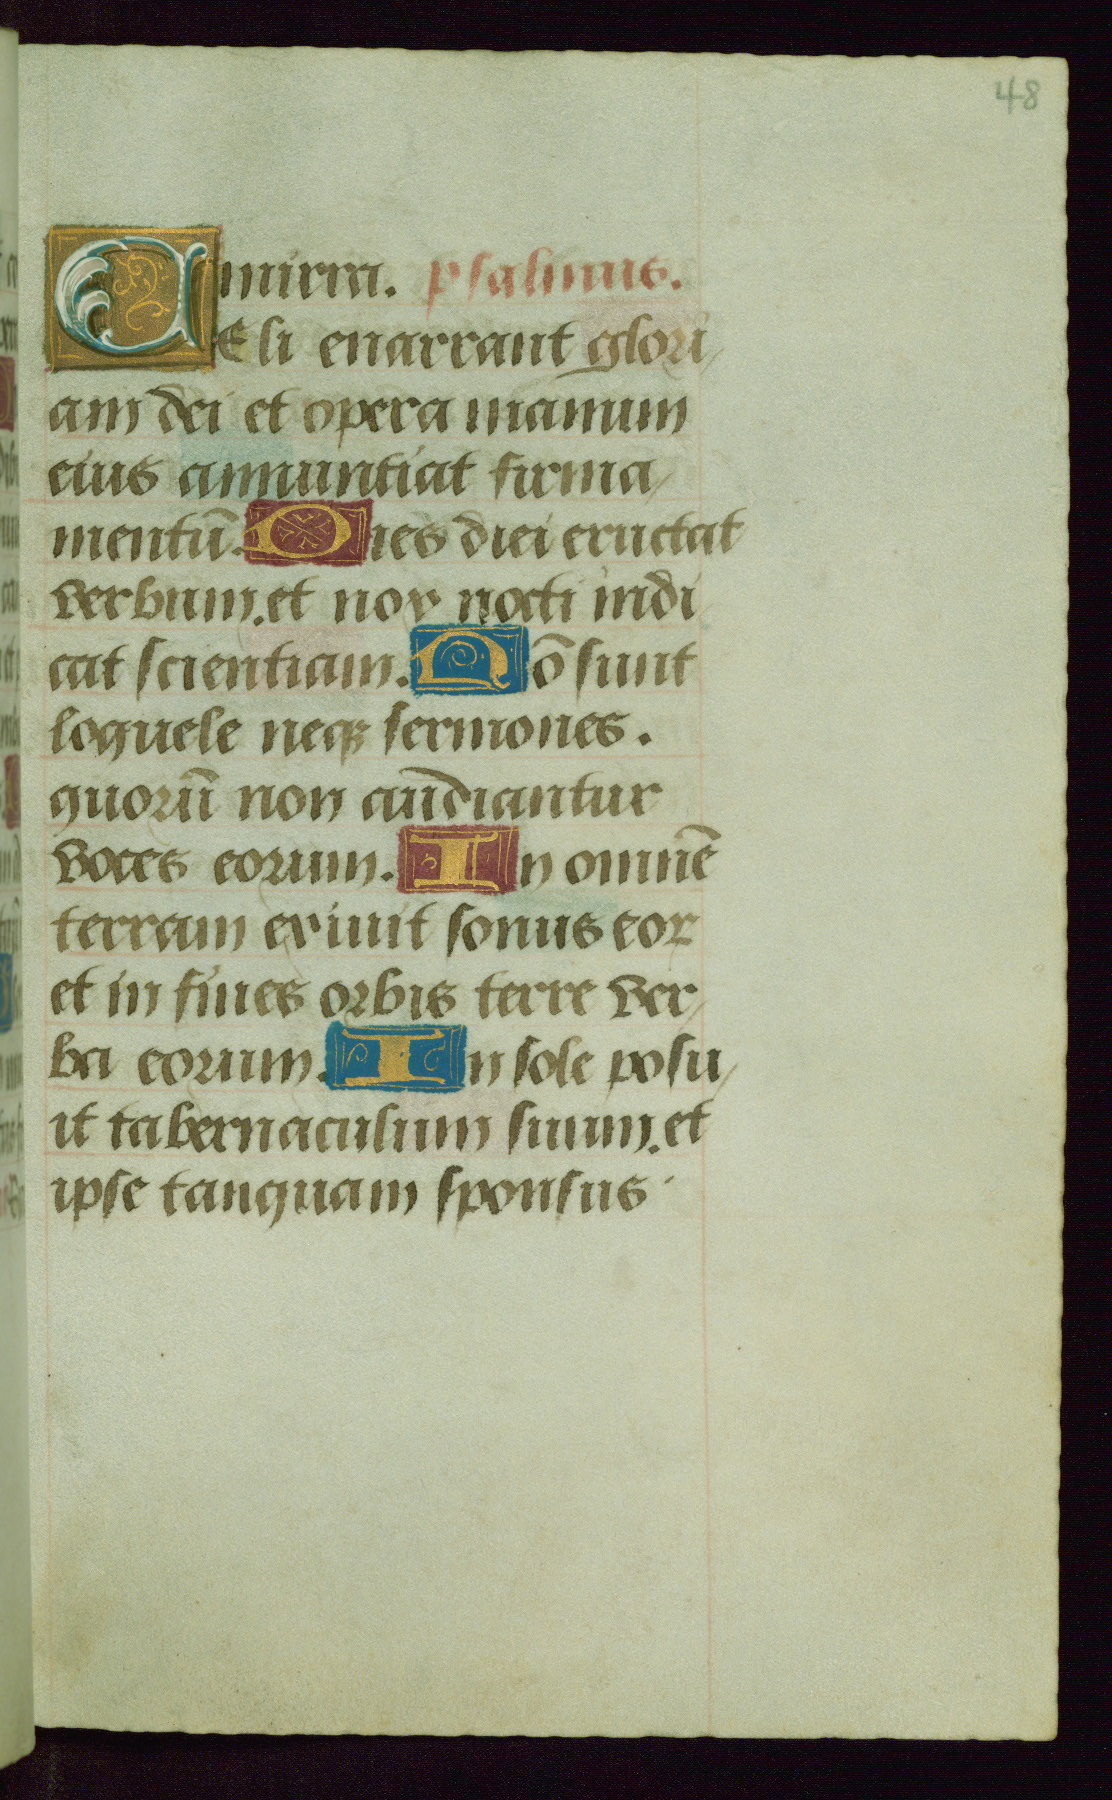 48
mirra. psalmus.
CEli enarrant glori
am dei et opera manuum
eius annuntiat firma
mentū. Dies diei eructat
verbum. et nox nocti indi
cat scientiam. Nō sunt
loquele neqꝫ sermones.
quorū non audiantur
voces eorum. In omnē
terram exiuit sonus eoꝝ
et in fines orbis terre ver
ba eorum. In sole posu
it tabernaculum suum. et
ipse tanquam sponsus